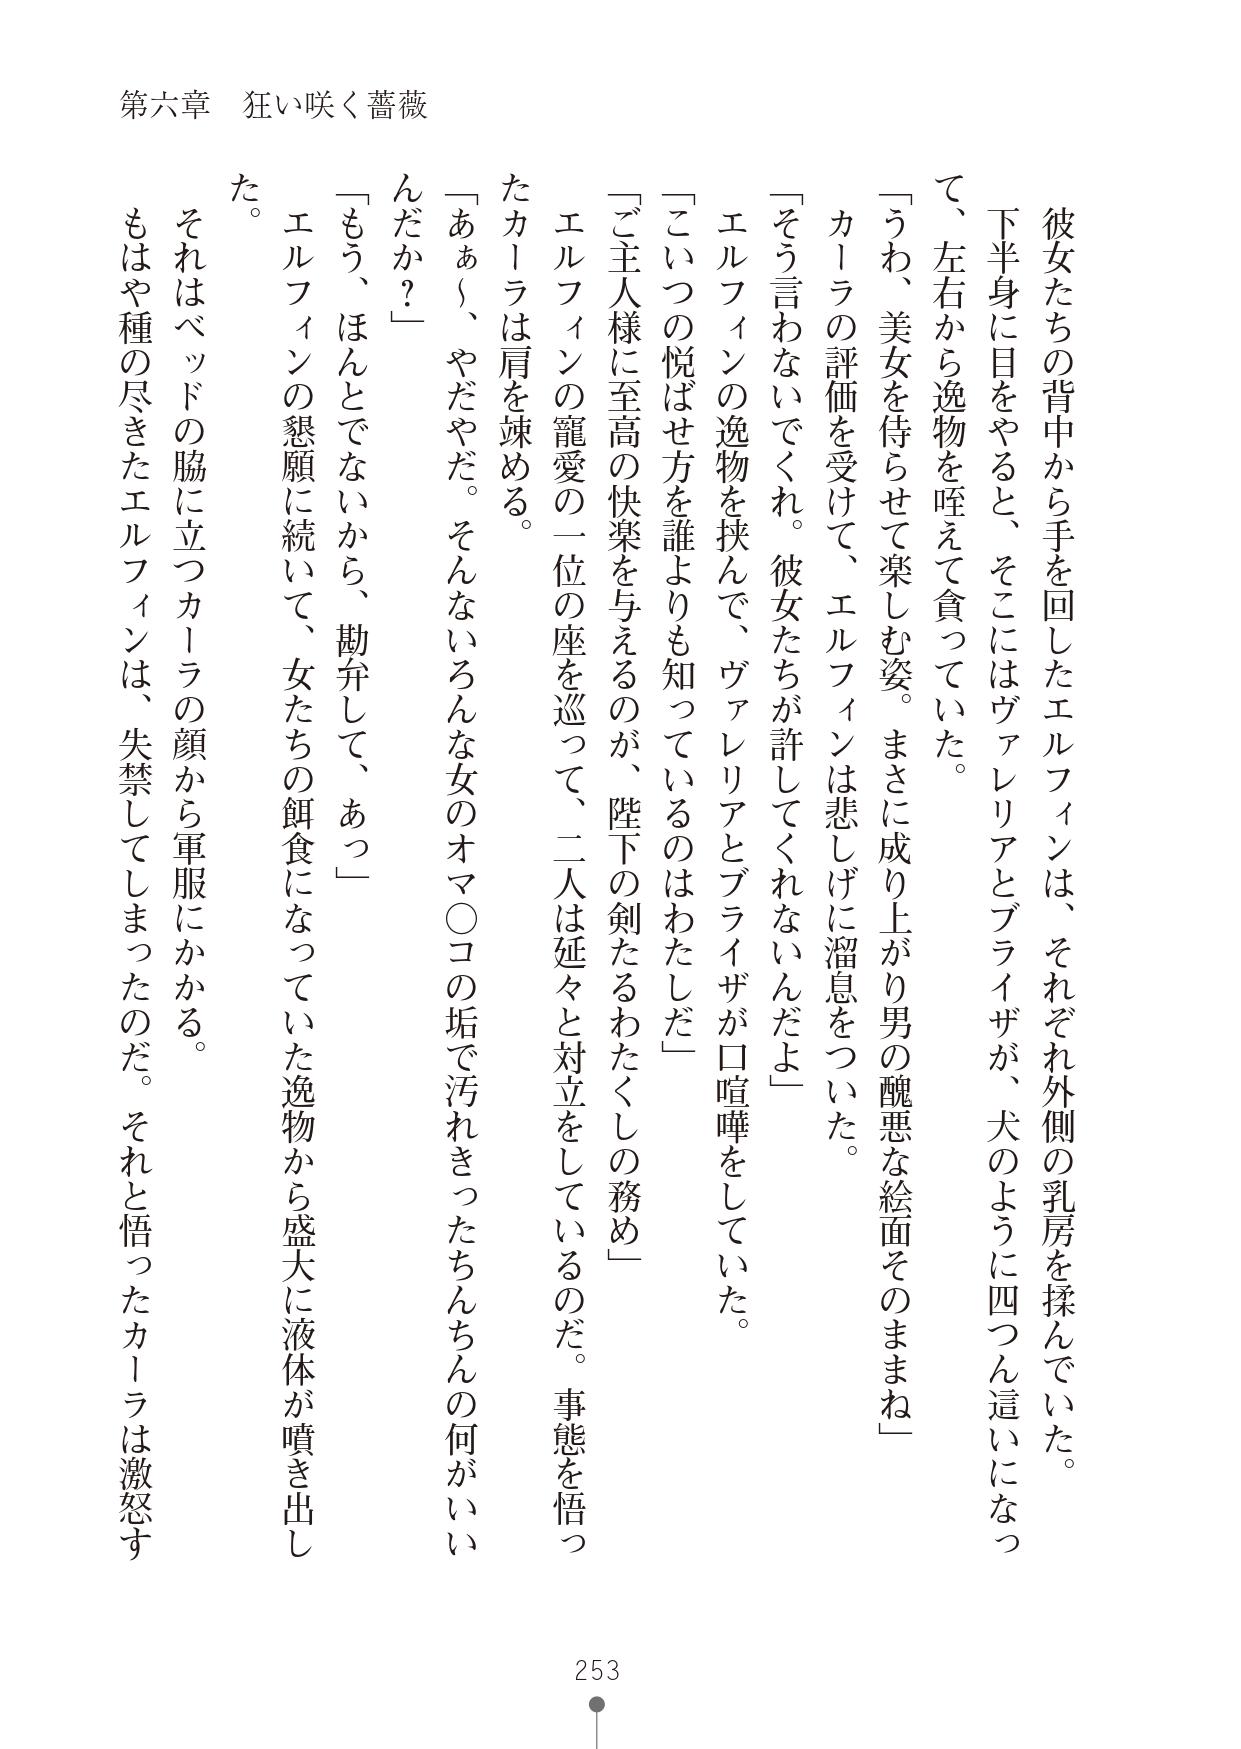 第六章　狂い咲く薔薇
　彼女たちの背中から手を回したエルフィンは、それぞれ外側の乳房を揉んでいた。
　下半身に目をやると、そこにはヴァレリアとブライザが、犬のように四つん這いになっ
て、左右から逸物を咥えて貪っていた。
「うわ、美女を侍らせて楽しむ姿。まさに成り上がり男の醜悪な絵面そのままね」
　カーラの評価を受けて、エルフィンは悲しげに溜息をついた。
「そう言わないでくれ。彼女たちが許してくれないんだよ」
　エルフィンの逸物を挟んで、ヴァレリアとブライザが口喧嘩をしていた。
「こいつの悦ばせ方を誰よりも知っているのはわたしだ」
「ご主人様に至高の快楽を与えるのが、陛下の剣たるわたくしの務め」
　エルフィンの寵愛の一位の座を巡って、二人は延々と対立をしているのだ。事態を悟っ
たカーラは肩を竦める。
「あぁ～、やだやだ。そんないろんな女のオマ〇コの垢で汚れきったちんちんの何がいい
んだか？」
「もう、ほんとでないから、勘弁して、あっ」
　エルフィンの懇願に続いて、女たちの餌食になっていた逸物から盛大に液体が噴き出し
た。
　それはベッドの脇に立つカーラの顔から軍服にかかる。
　もはや種の尽きたエルフィンは、失禁してしまったのだ。それと悟ったカーラは激怒す
253